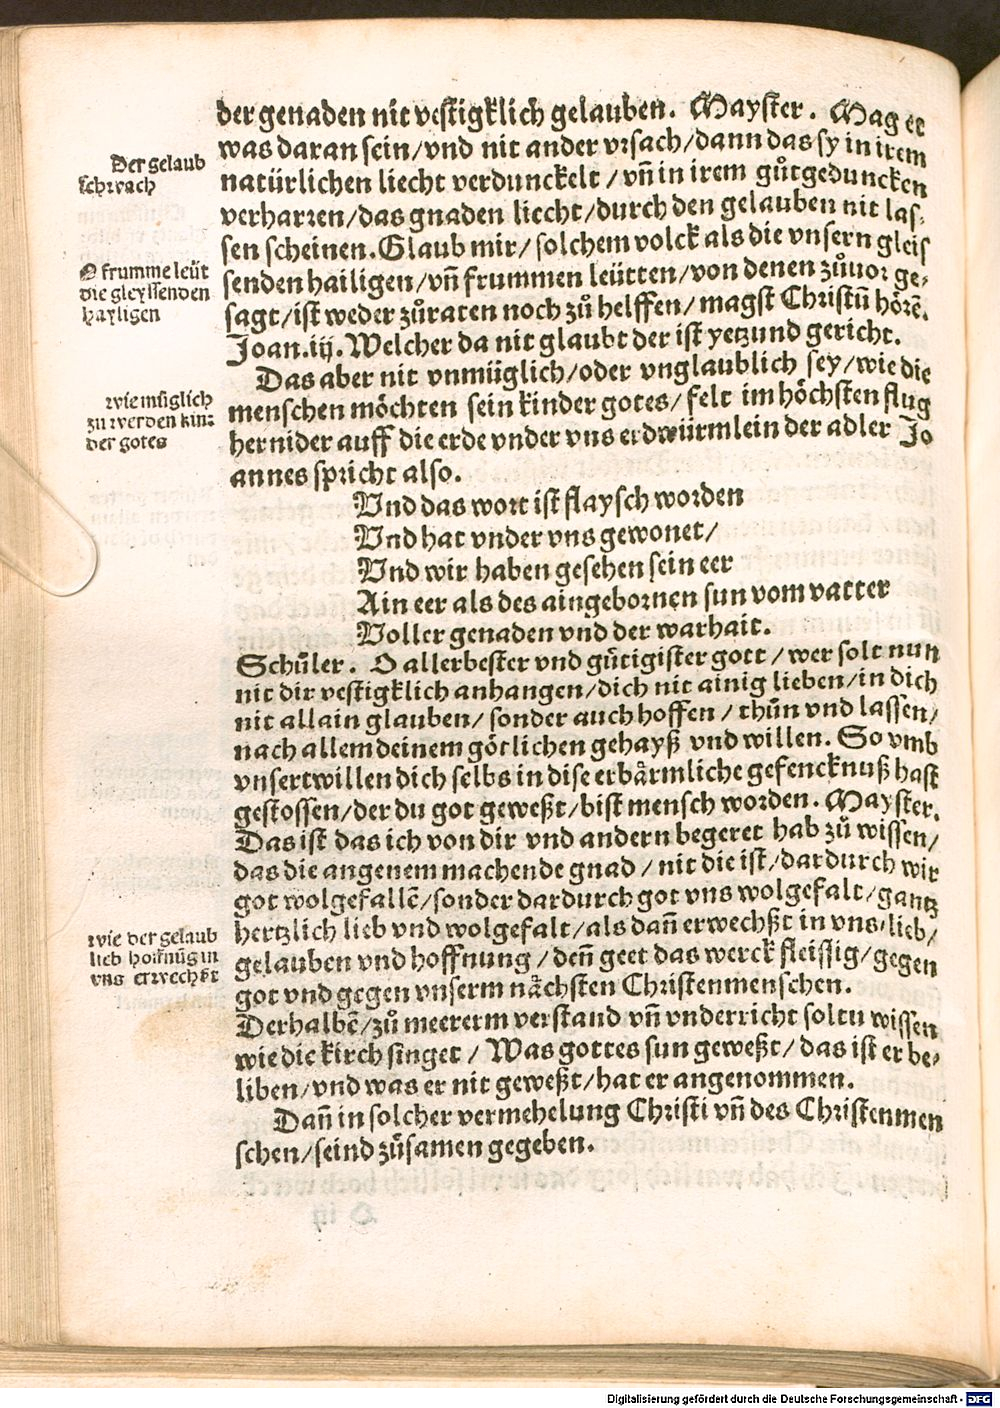 der genaden nit vestigklich gelauben. Mayster. Mag et
was daran sein/vnd nit ander vrsach/dann das sy in irem
natürlichen liecht verdunckelt/vñ in irem gůtgeduncken
verharren/das gnaden liecht/durch den gelauben nit las-
sen scheinen. Glaub mir/solchem volck als die vnsern gleis
senden hailigen/vñ frummen leütten/von denen zůuor ge-
sagt/ist weder zůraten noch zů helffen/magst Christũ hörẽ.
Joan.iij. Welcher da nit glaubt der ist yetzund gericht.
Das aber nit vnmüglich/oder vnglaublich sey/wie die
menschen möchten sein kinder gotes/felt im höchsten flug
hernider auff die erde vnder vns erdwürmlein der adler Jo
annes spricht also.
Vnd das wort ist flaysch worden
Vnd hat vnder vns gewonet/
Vnd wir haben gesehen sein eer
Ain eer als des aingebornen sun vom vatter
Voller genaden vnd der warhait.
Schůler. O allerbester vnd gůtigister gott/wer solt nun
nit dir vestigklich anhangen/dich nit ainig lieben/in dich
nit allain glauben/sonder auch hoffen/thůn vnd lassen/
nach allem deinem götlichen gehayß vnd willen. So vmb
vnsertwillen dich selbs in dise erbärmliche gefencknuß hast
gestossen/der du got geweßt/bist mensch worden. Mayster.
Das ist das ich von dir vnd andern begeret hab zů wissen/
das die angenem machende gnad/nit die ist/dardurch wir
got wolgefallẽ/sonder dardurch got vns wolgefalt/gantz
hertzlich lieb vnd wolgefalt/als dañ erwechßt in vns/lieb/
gelauben vnd hoffnung/deñ geet das werck fleissig/gegen
got vnd gegen vnserm nächsten Christenmenschen.
Derhalbẽ/zů meererm verstand vñ vnderricht soltu wissen
wie die kirch singet/Was gottes sun geweßt/das ist er be-
liben/vnd was er nit geweßt/hat er angenommen.
Dañ in solcher vermehelung Christi vñ des Christenmen
schen/seind zůsamen gegeben.
Der gelaub
schwach
O frumme leüt
die gleyssenden
hayligen
wie müglich
zu werden kin-
der gotes
wie der gelaub
lieb hoffnũg in
vns erwechßt
Digitalisierung gefördert durch die Deutsche Forschungsgemeinschaft - DFG